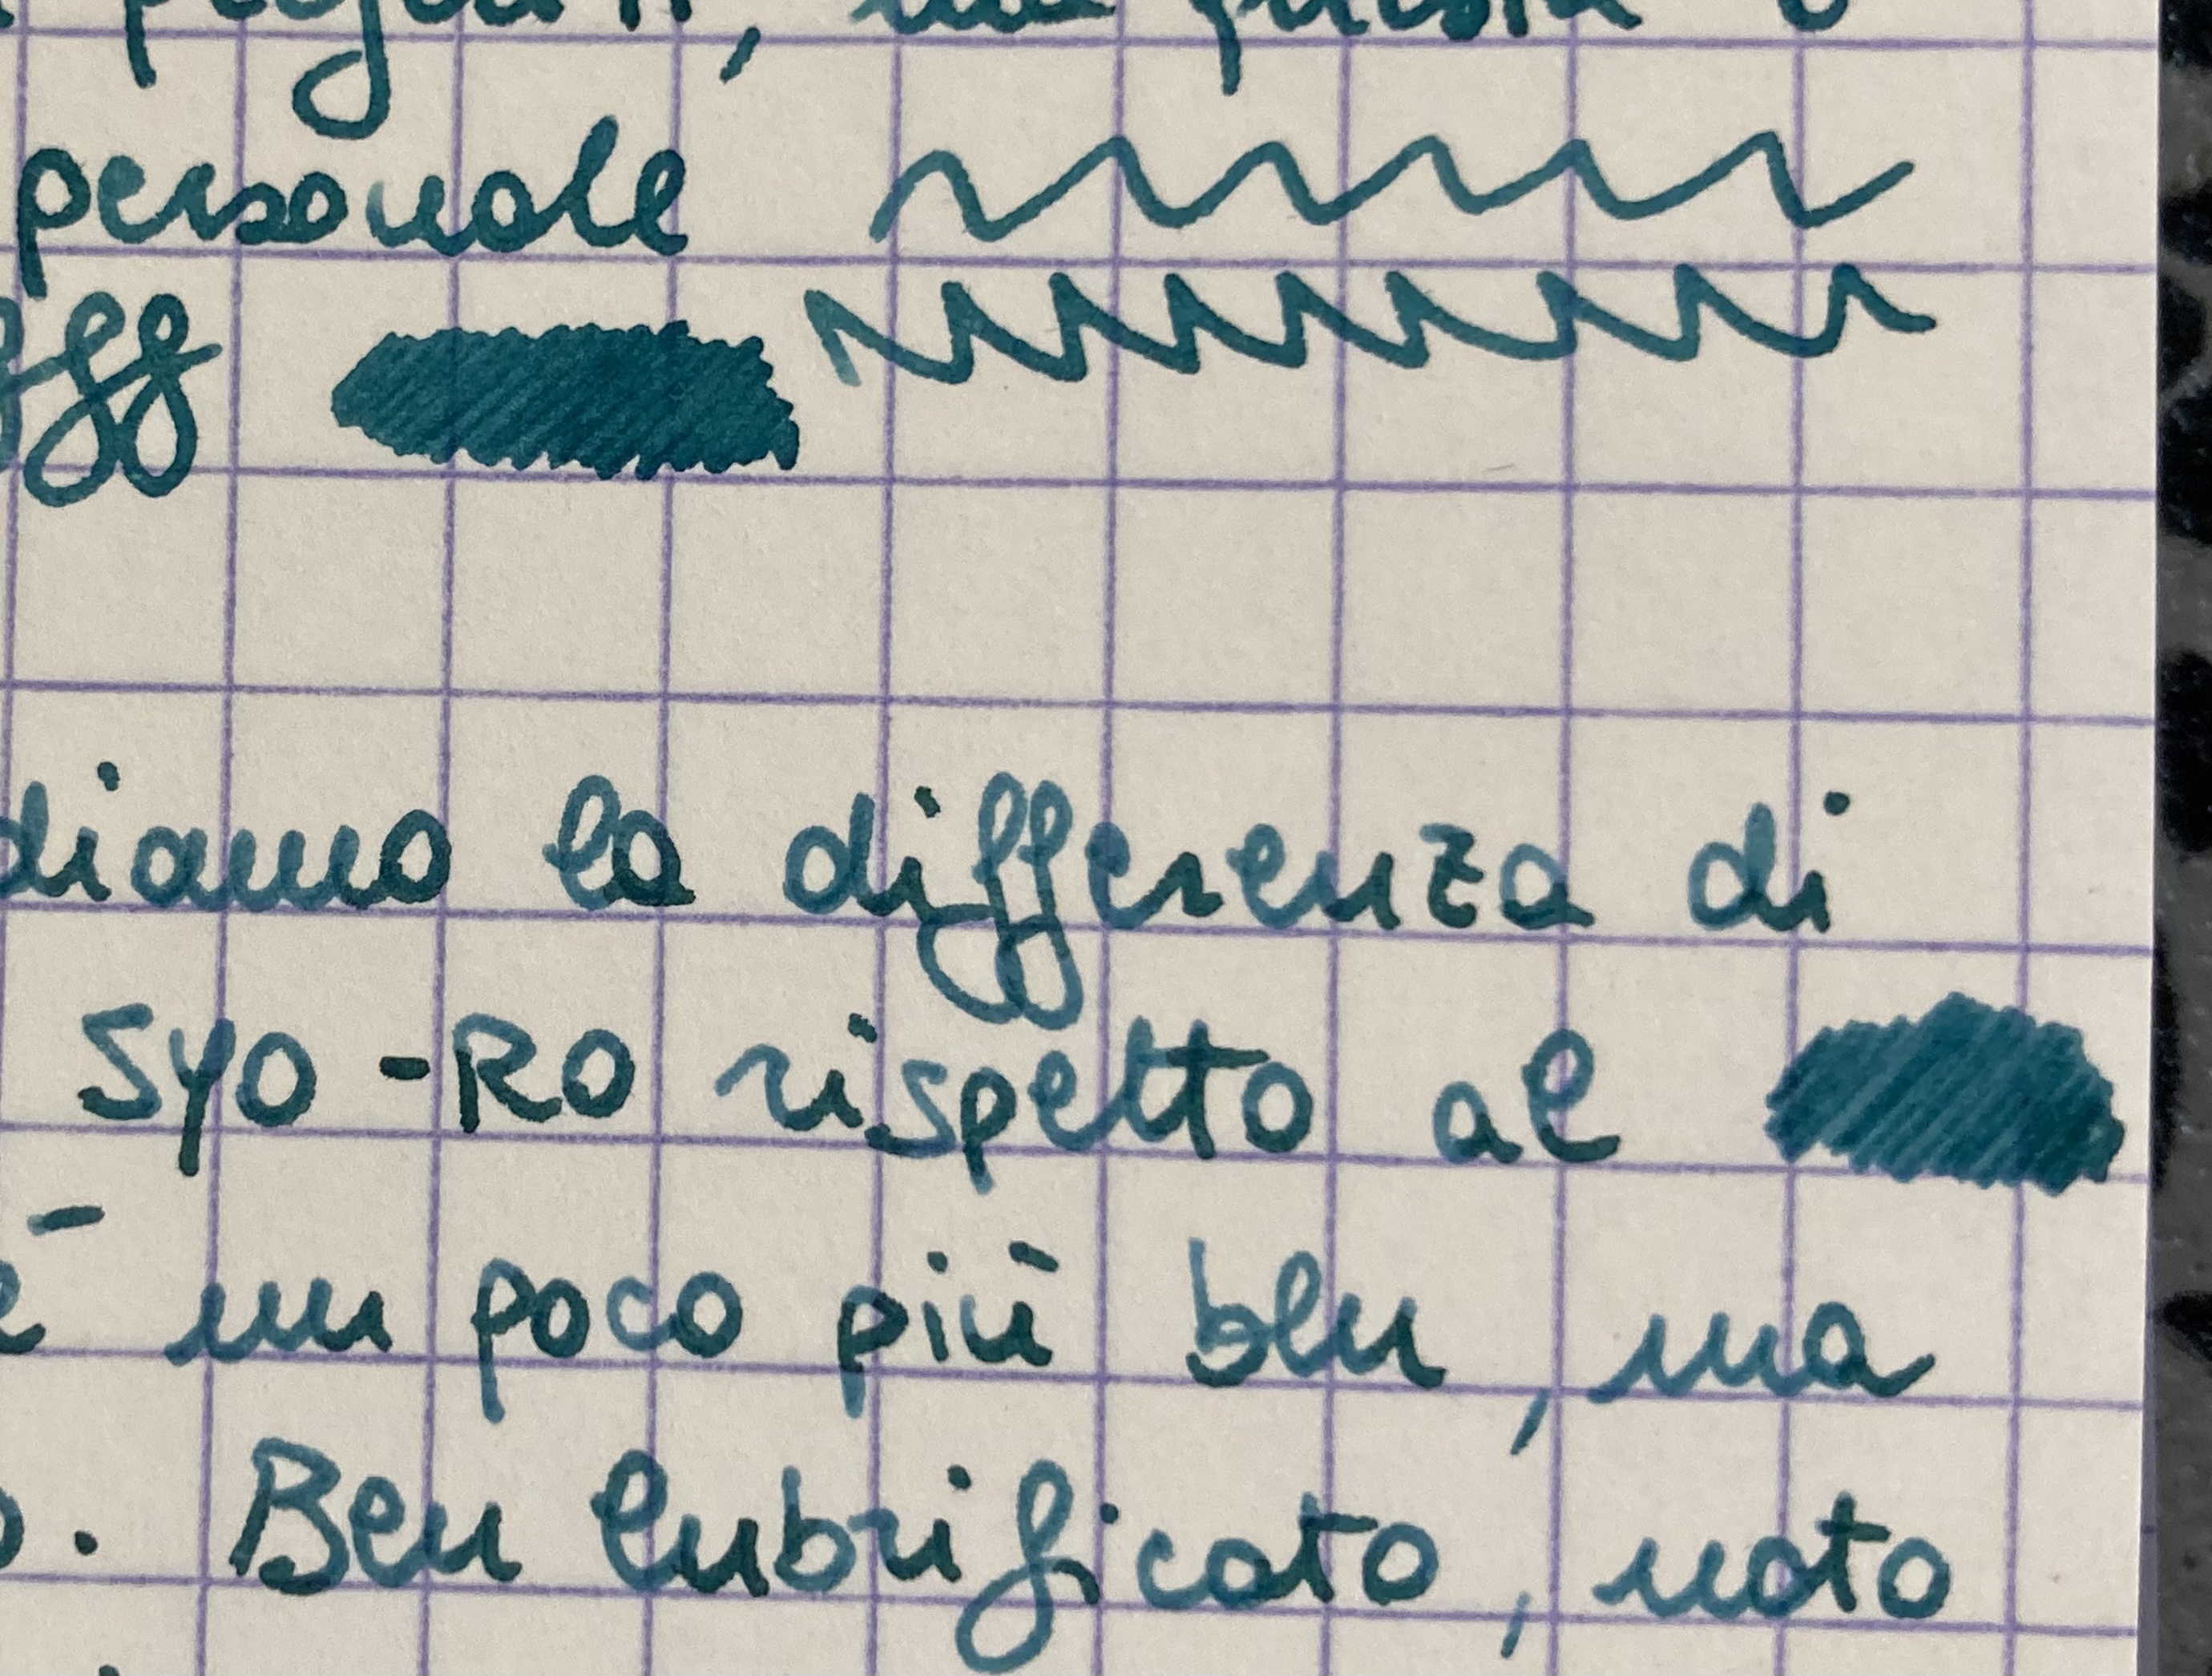 personale
diamo la differenza di
SYO-RO rispetto al
è un poco più blu, ma
. Ben lubrificato, noto